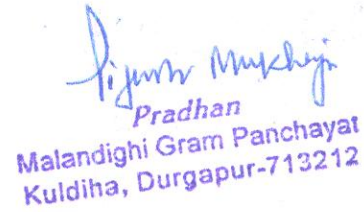 Pijush Mukherji
Pradhan
Malandighi Gram Panchayat
Kuldiha, Durgapur-713212